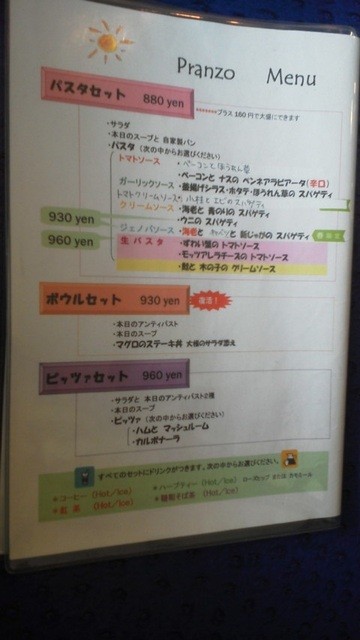 Pranzo Menu
パスタセット 880 yen
プラス160円で大盛にできます
・サラダ
・本日のスープと 自家製パン
・パスタ (次の中からお選びください)
トマトソース ・ベーコンとほうれん草
・ベーコンと ナスの ペンネアラビアータ(辛口)
ガーリックソース ・釜揚げシラス・ホタテ・ほうれん草の スパゲティ
トマトクリームソース ・小柱とエビのスパゲティ
クリームソース ・海老と 青のりの スパゲティ
930 yen ・ウニの スパゲティ
ジェノバソース ・海老と キャベツと 新じゃがの スパゲティ
960 yen 生 パスタ ・ずわい蟹の トマトソース
・モッツアレラチーズの トマトソース
・鮭と 木の子の クリームソース
ボウルセット 930 yen 復活!
・本日のアンティパスト
・本日のスープ
・マグロのステーキ丼 大根のサラダ添え
ピッツァセット 960 yen
・サラダと 本日のアンティパスト2種
・本日のスープ
・ピッツァ (次の中からお選びください)
・ハムと マッシュルーム
・カルボナーラ
すべてのセットにドリンクがつきます。次の中からお選びください。
＊コーヒー (Hot/Ice) ＊ハーブティー (Hot/Ice) ローズヒップ または カモミール
＊紅 茶 (Hot/Ice) ＊韃靼そば茶 (Hot/Ice)